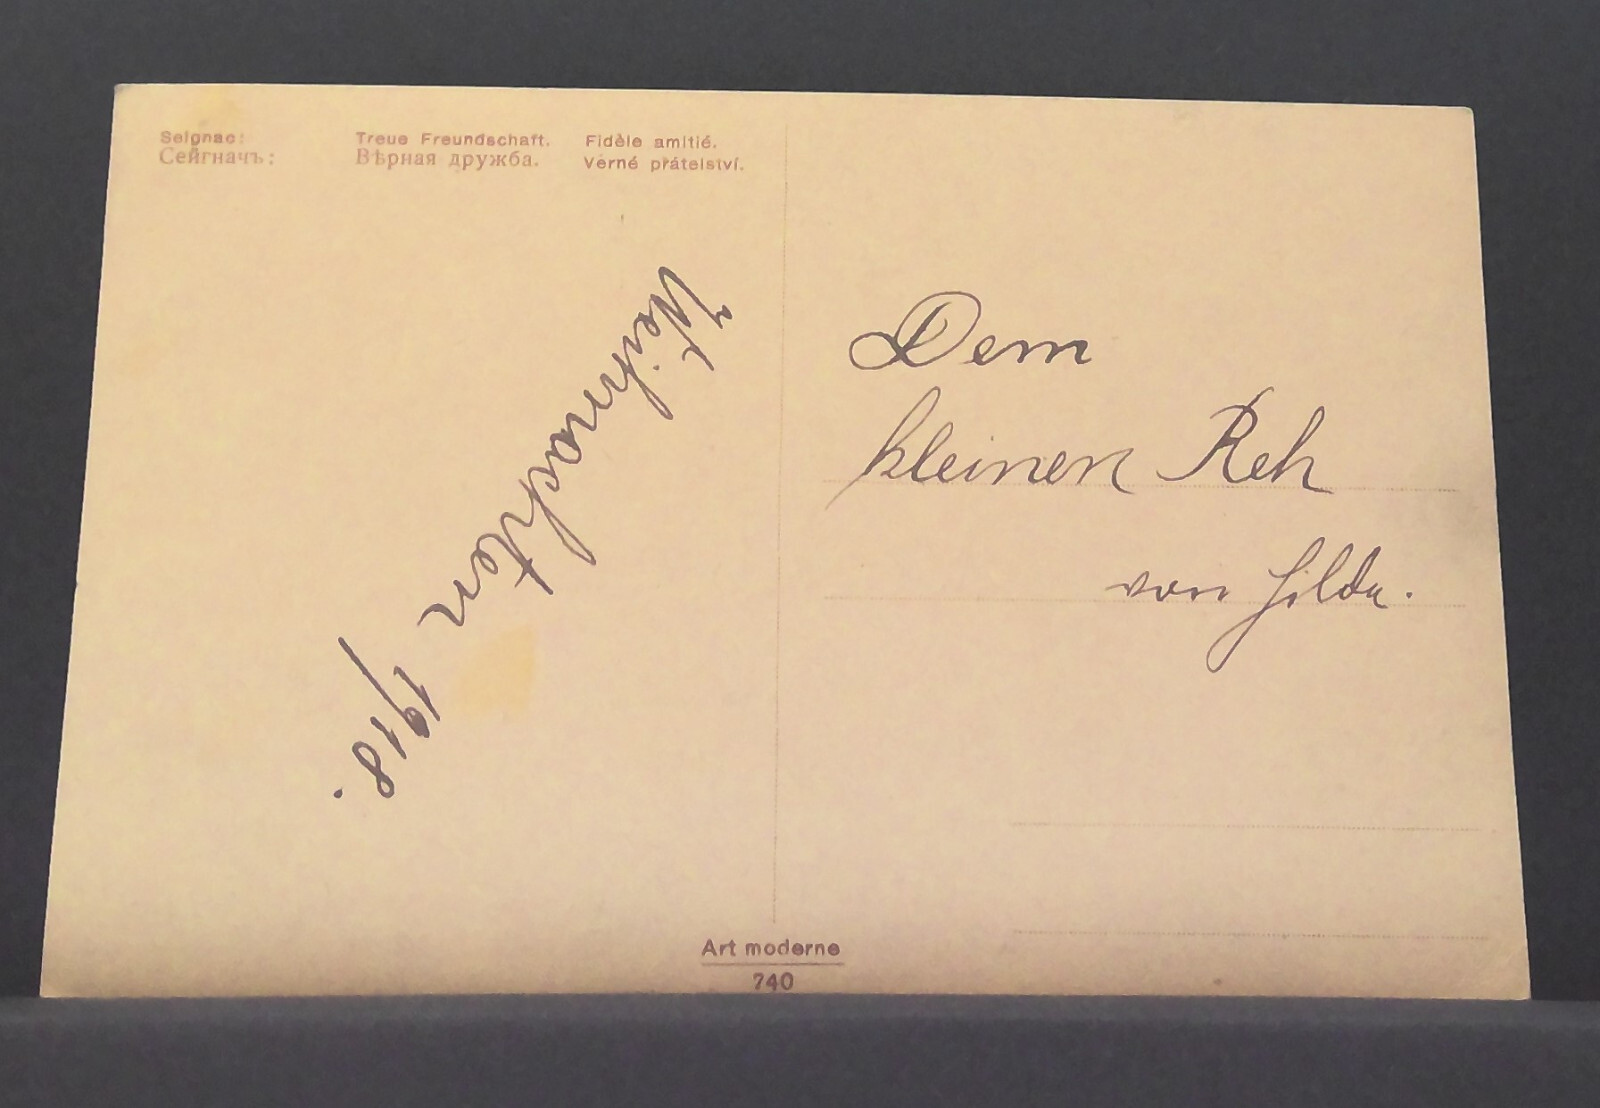 Seignac:
Сейгначъ:
Treue Freundschaft.
Вѣрная дружба.
Fidèle amitié.
Věrné přátelství.
Weihnachten 1918.
Dem
kleinen Reh
von Hilda.
Art moderne
740